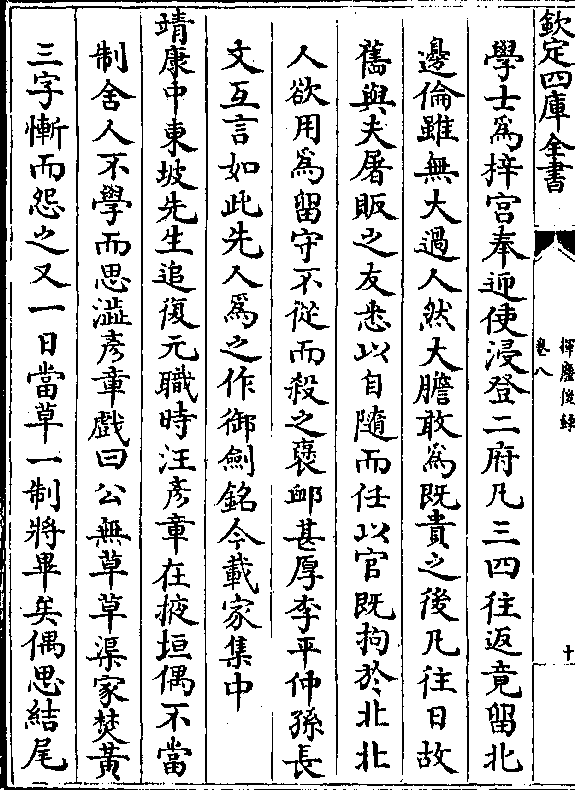 欽定四庫全書
揮麈後錄
卷八
十
學士為梓宫奉迎使浸登二府凡三四往返竟留北
邊倫雖無大過人然大膽敢為既貴之後凡往日故
舊與夫屠販之友悉以自隨而任以官既拘於北北
人欲用為留守不從而殺之褒䘏甚厚李平仲孫長
文互言如此先人為之作御劍銘今載家集中
靖康中東坡先生追復元職時汪彦章在掖垣偶不當
制舍人不學而思澁彦章戲曰公無草草渠家焚黄
三字慚而怨之又一日當草一制將畢矣偶思結尾